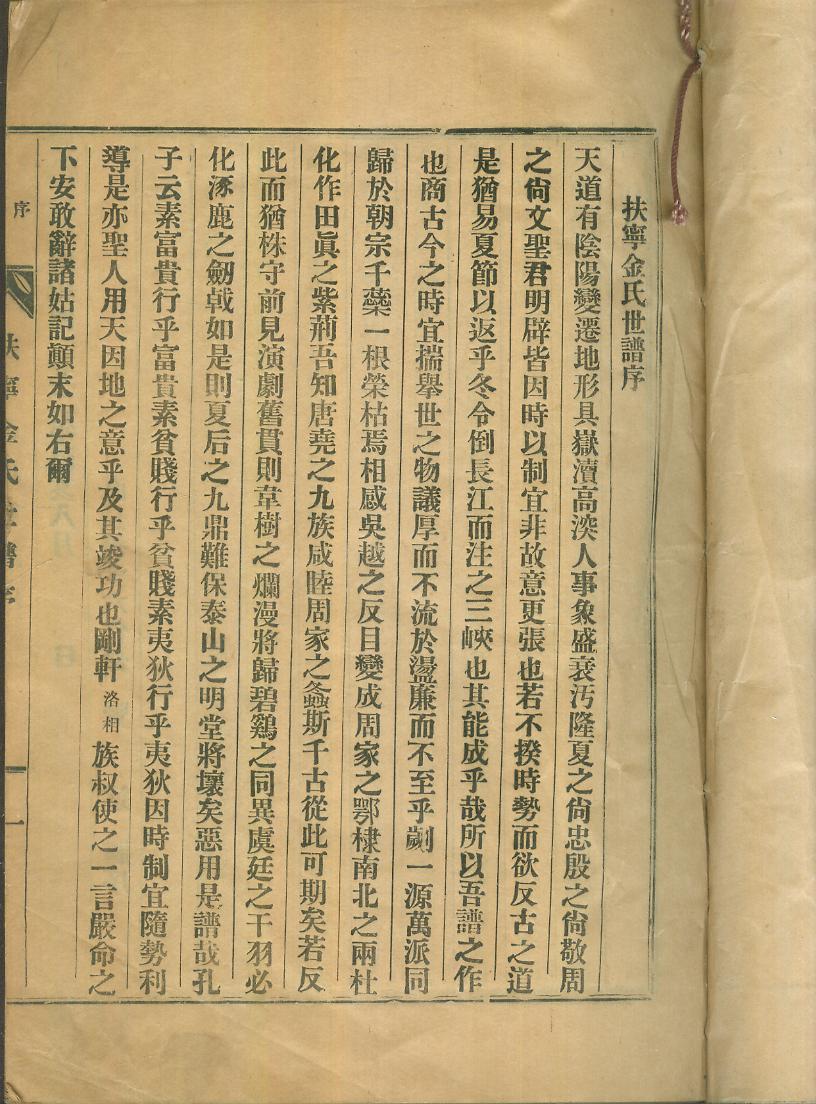 扶寧金氏世譜序
天道有陰陽變遷地形具嶽瀆高深人事象盛衰汚隆夏之尙忠殷之尙敬周
之尙文聖君明辟皆因時以制宜非故意更張也若不揆時勢而欲反古之道
是猶易夏節以返乎冬令倒長江而注之三峽也其能成乎哉所以吾譜之作
也商古今之時宜揣擧世之物議厚而不流於濫廉而不至乎劌一源萬派同
歸於朝宗千蘂一根榮枯焉相感吳越之反目變成周家之鄂棣南北之兩杜
化作田眞之紫荊吾知唐堯之九族咸睦周家之螽斯千古從此可期矣若反
此而猶株守前見演劇舊貫則韋樹之爛漫將歸碧鷄之同異虞廷之干羽必
化涿鹿之劒戟如是則夏后之九鼎難保泰山之明堂將壞矣惡用是譜哉孔
子云素富貴行乎富貴素貧賤行乎貧賤素夷狄行乎夷狄因時制宜隨勢利
導是亦聖人用天因地之意乎及其竣功也剛軒洛相族叔使之一言嚴命之
下安敢辭諸姑記顚末如右爾
序
扶寧金氏世譜序
一